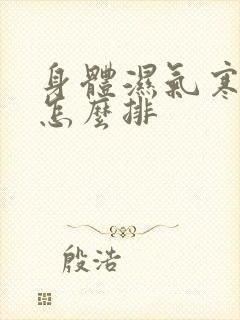 身體濕氣寒
怎麼排
殷浩